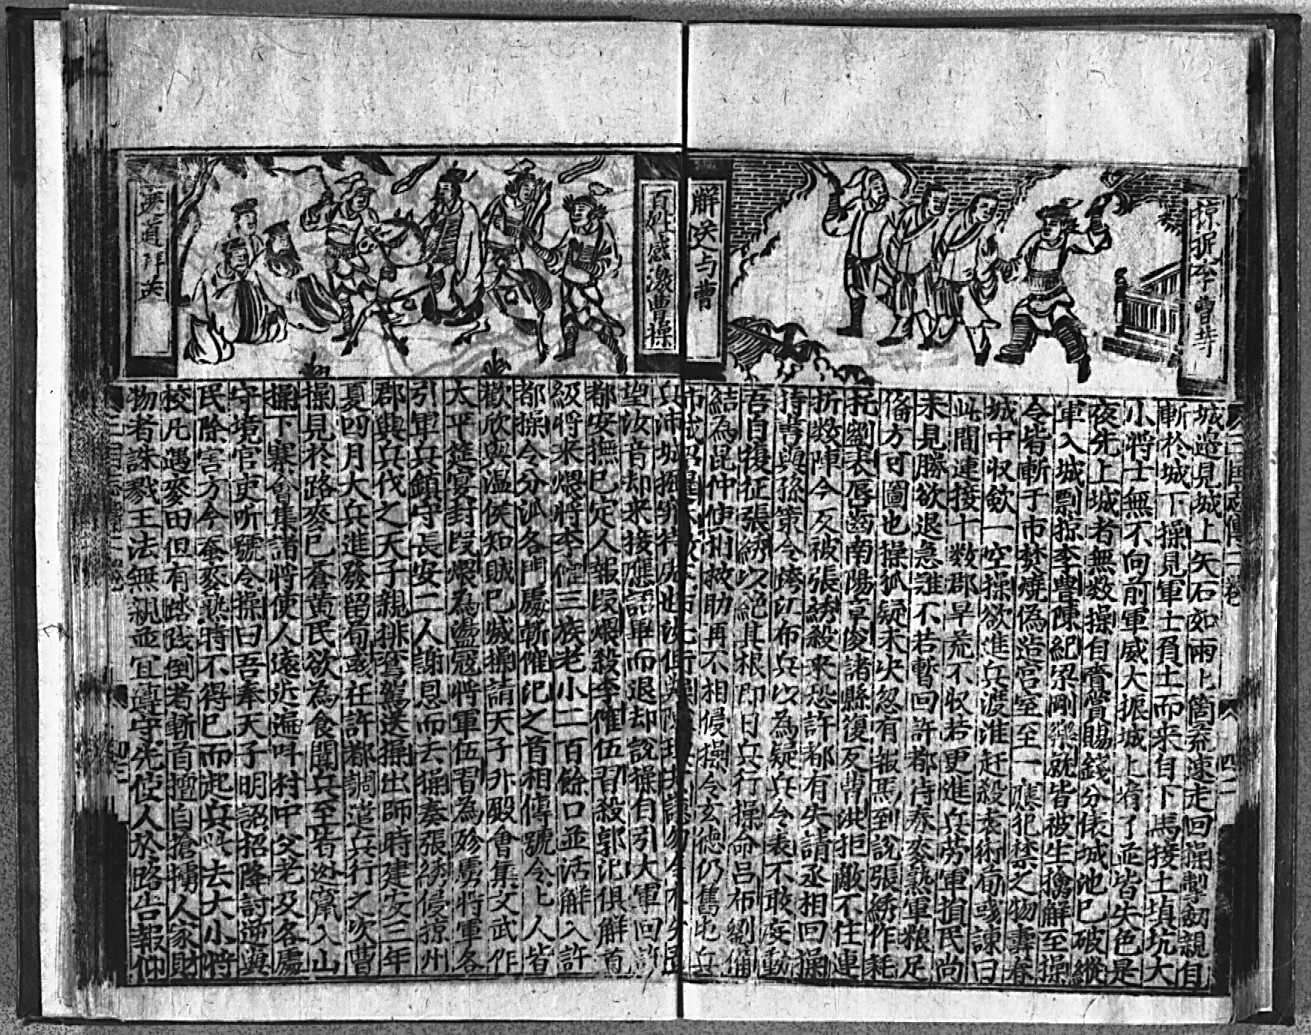 掠振李豐等
解送与曹
城邉見城上矢石如雨上箇亦速走回操掣劔親自
斬於城下操見軍士負土而來自下馬接土填坑大
小將士無不向前軍威大振城上者了並皆失色是
夜先上城者無数操自賫賞賜錢分俵城池已破縱
軍入城剽掠李豊陳紀梁剛樂就皆被生擒解至操
令皆斬于市焚燒偽造宮室至一應犯禁之物壽春
城中収歛一空操欲進兵渡淮赶殺袁術荀彧諫曰
此間連接十数郡旱荒不収若更進兵劳軍損民尚
未見勝欲退急誰不若暫回許都待春麥熟軍粮足
俻方可圖也操狐疑未决忽有报馬到說張綉作耗
托劉表唇齒南陽章陵諸縣復反曹洪拒敵不住連
折数陣今反被張綉殺來恐許都有失請丞相回操
持書與孫策令跨江布兵以為疑兵令表不敢妄動
吾自復征張綉以絶其根即日兵行操命吕布劉備
結為昆仲使相救助再不相侵操令玄德仍舊屯兵
百姓感激曹操
夾道拜送
望汝音却来接應語畢而退却說操自引大軍回許
都安撫已定人報段煨殺李傕伍習殺郭汜俱觧首
級將来煨將李傕三族老小二百餘口並活觧入許
都操令分派各門處斬傕汜之首相傳號令之人皆
歡欣與溫侯知賊已滅操請天子升殿會集文武作
太平筵宴封段煨為盪冦將軍伍習為殄虜將軍各
引軍兵鎮守長安二人謝恩而去操奏張綉侵掠州
郡興兵伐之天子親排鸞駕送操出師時建安三年
夏四月大兵進發留荀彧在許都調遣兵行之次曹
操見於路麥已蒼黄民欲為食聞兵至者逃竄入山
操下寨會集諸將使人遠近遍叫村中父老及各處
守境官吏听號令操曰吾奉天子明詔招降討逆與
民除害方今蚕麥熟時不得已而起兵此去大小將
校凡過麥田但有踐踐倒者斬首擅自搶擄人家財
物者誅戮王法無親並宜遵守先使人於路告報仰